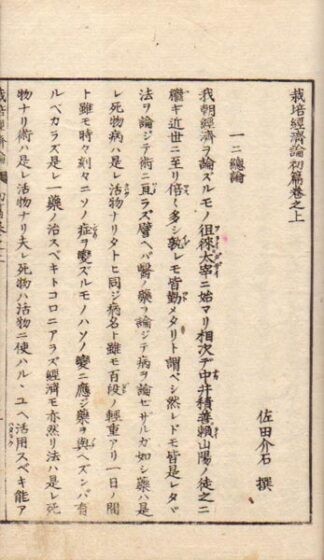 栽培經濟論初篇卷之上
佐田介石 撰
一二總論
我朝經濟ヲ論ズルモノ徂徠太宰ニ始マリ相次デ中井積善賴山陽ノ徒之ニ
繼ギ近世ニ至リ倍〻多シ孰レモ皆勤メタリト謂ベシ然レドモ皆是レタヾ
法ヲ論ジテ術ニ亘ラズ譬ヘバ醫ノ藥ヲ論ジテ病ヲ論セザルカ如シ藥ハ是
レ死物病ハ是レ活物ナリタトヒ同ジ病名ト雖モ百段ノ輕重アリ一日ノ間
ト雖モ時々刻々ニソノ症ヲ變ズルモノハソノ變ニ應ジ藥ヲ與ヘズンバ有
ルベカラズ是レ一藥ノ治スベキトコロニアラズ經濟モ亦然リ法ハ是レ死
物ナリ術ハ是レ活物ナリ夫レ死物ハ活物ニ使ハル、ユヘ活用スベキ能ア
栽培經濟論 初篇卷之上